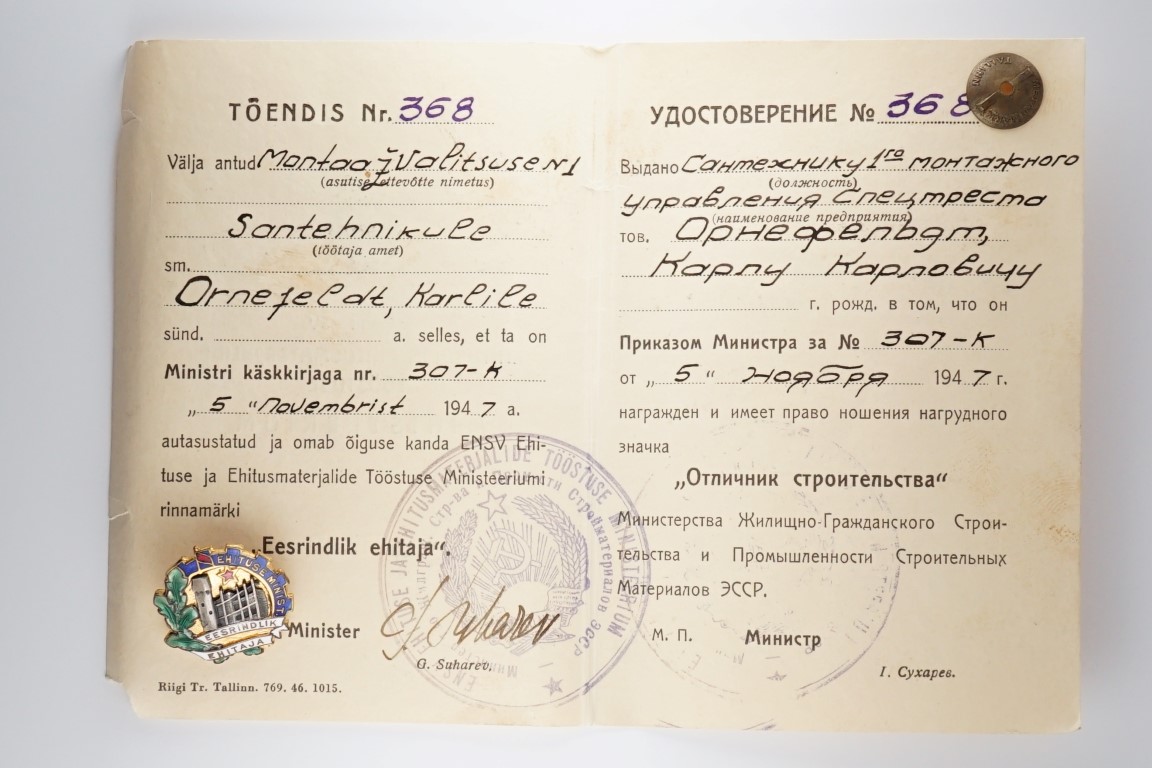 TÕENDIS Nr. 368
Välja antud Montaaž Valitsuse N1
(asutise, ettevõtte nimetus)
Santehnikule
(töötaja amet)
sm.
Ornefeldt, Karlile
sünd. a. selles, et ta on
Ministri käskkirjaga nr. 307-K
„ 5 “ Novembrist 1947 a.
autasustatud ja omab õiguse kanda ENSV Ehi-
tuse ja Ehitusmaterjalide Tööstuse Ministeeriumi
rinnamärki
„Eesrindlik ehitaja“.
Minister G. Suharev
G. Suharev.
Riigi Tr. Tallinn. 769. 46. 1015.
EHITUSE MINIST.
EESRINDLIK
EHITAJA
ENSV EHITUSE JA EHITUSMATERJALIDE TÖÖSTUSE MINISTEERIUM
Стр-ва и Пром-сти Стройматериалов ЭССР
УДОСТОВЕРЕНИЕ № 368
Выдано Сантехнику 1го монтажного
(должность)
управления Спецтреста
(наименование предприятия)
тов. Орнефельдт,
Карлу Карловичу
г. рожд. в том, что он
Приказом Министра за № 307-К
от „ 5 “ ноября 1947 г.
награжден и имеет право ношения нагрудного
значка
„Отличник строительства“
Министерства Жилищно-Гражданского Строи-
тельства и Промышленности Строительных
Материалов ЭССР.
М. П. Министр
І. Сухарев.